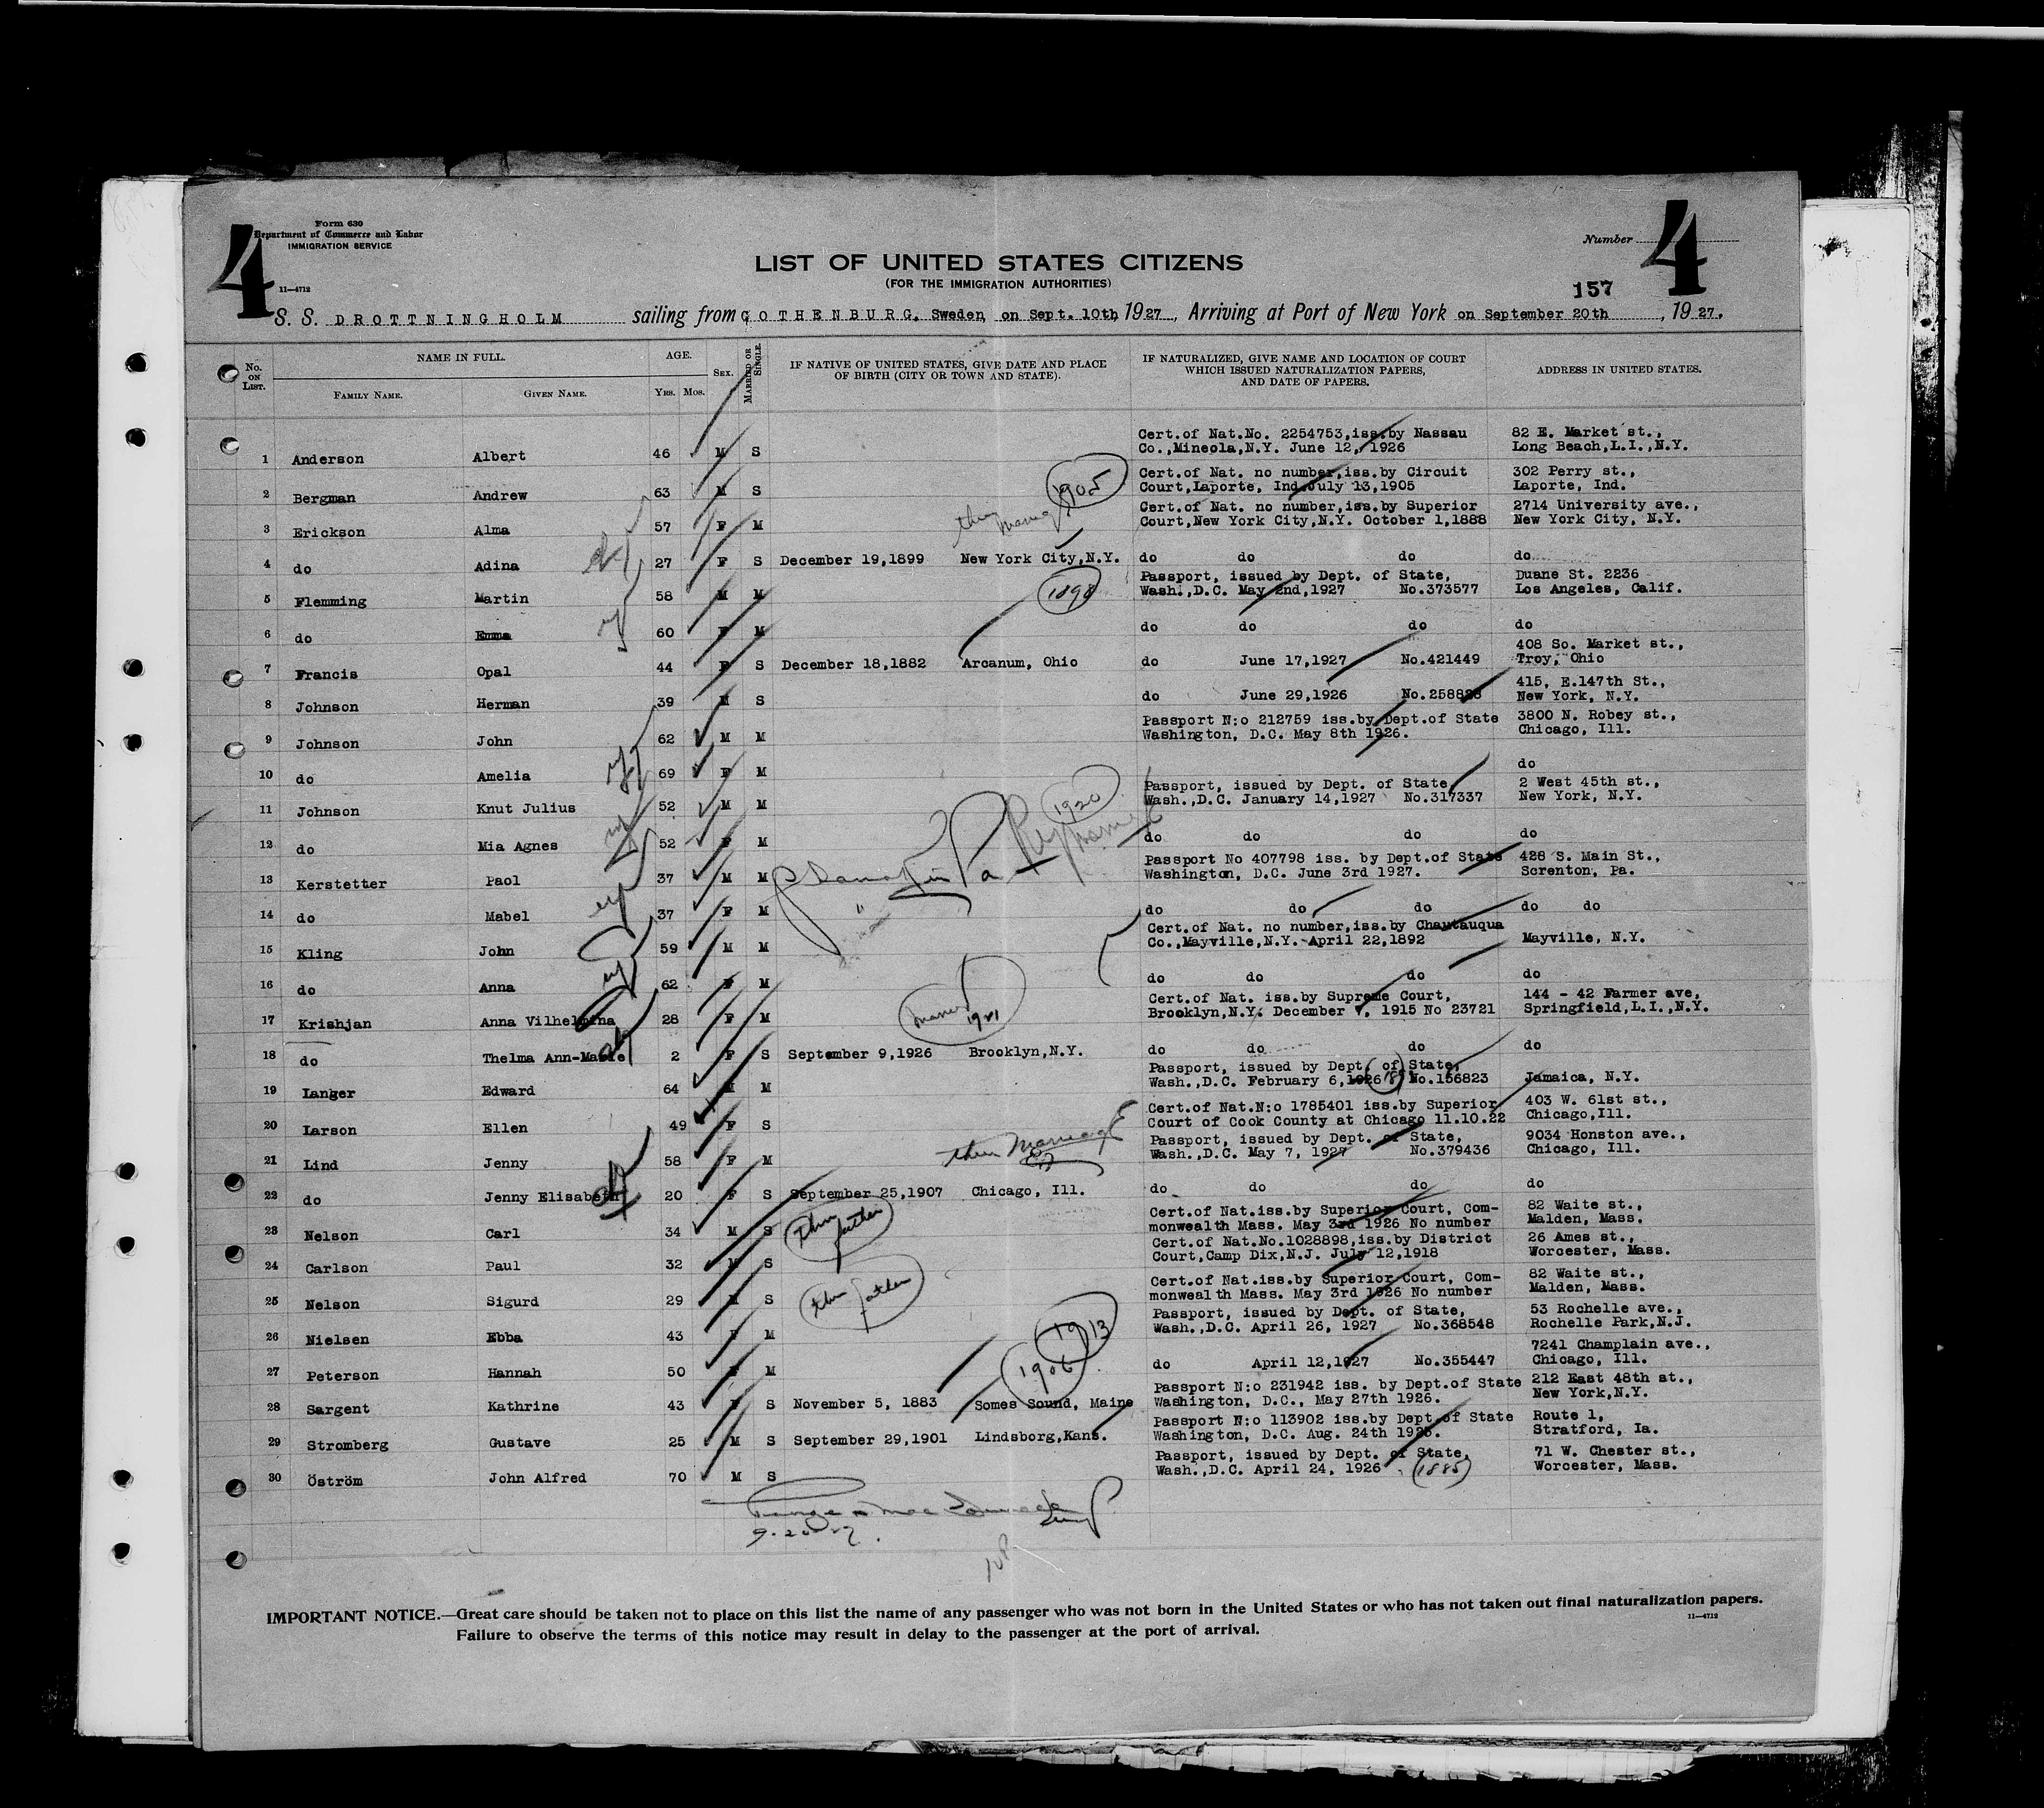 4
Form 630
Department of Commerce and Labor
IMMIGRATION SERVICE
11—4712
Number
4
LIST OF UNITED STATES CITIZENS
(FOR THE IMMIGRATION AUTHORITIES)
157
S. S. DROTTNINGHOLM sailing from GOTHENBURG, Sweden, on Sept. 10th, 1927, Arriving at Port of New York on September 20th, 1927.
No. ON LIST. NAME IN FULL. FAMILY NAME. GIVEN NAME. AGE. YRS. MOS. SEX. MARRIED OR SINGLE. IF NATIVE OF UNITED STATES, GIVE DATE AND PLACE OF BIRTH (CITY OR TOWN AND STATE). IF NATURALIZED, GIVE NAME AND LOCATION OF COURT WHICH ISSUED NATURALIZATION PAPERS, AND DATE OF PAPERS. ADDRESS IN UNITED STATES.
Cert.of Nat.No. 2254753,iss.by Nassau 82 E. Market st.,
1 Anderson Albert 46 M S Co.,Mineola,N.Y. June 12, 1926 Long Beach,L.I.,N.Y.
Cert.of Nat. no number,iss.by Circuit 302 Perry st.,
2 Bergman Andrew 63 M S 1905 Court,Laporte, Ind.July 13,1905 Laporte, Ind.
Cert.of Nat. no number,iss.by Superior 2714 University ave.,
3 Erickson Alma 57 F M Court,New York City,N.Y. October 1,1888 New York City, N.Y.
4 do Adina 27 F S December 19,1899 New York City,N.Y. do do do do
Passport, issued by Dept. of State, Duane St. 2236
5 Flemming Martin 58 M M 1898 Wash.,D.C. May 2nd,1927 No.373577 Los Angeles, Calif.
6 do Emma 60 F M do do do do
408 So. Market st.,
7 Francis Opal 44 F S December 18,1882 Arcanum, Ohio do June 17,1927 No.421449 Troy, Ohio
415, E.147th St.,
8 Johnson Herman 39 M S do June 29,1926 No.258828 New York, N.Y.
Passport N:o 212759 iss.by Dept.of State 3800 N. Robey st.,
9 Johnson John 62 M M Washington, D.C. May 8th 1926. Chicago, Ill.
10 do Amelia 69 F M do
Passport, issued by Dept. of State, 2 West 45th st.,
11 Johnson Knut Julius 52 M M 1920 Wash.,D.C. January 14,1927 No.317337 New York, N.Y.
12 do Mia Agnes 52 F M do do do do
Passport No 407798 iss. by Dept.of State 428 S. Main St.,
13 Kerstetter Paol 37 M M Washington, D.C. June 3rd 1927. Screnton, Pa.
14 do Mabel 37 F M do do do do do
Cert.of Nat. no number,iss.by Chautauqua
15 Kling John 59 M M Co.,Mayville,N.Y. April 22,1892 Mayville, N.Y.
16 do Anna 62 F M do do do do
Cert.of Nat. iss.by Supreme Court, 144 - 42 Farmer ave,
17 Krishjan Anna Vilhelmina 28 F M 1921 Brooklyn,N.Y. December , 1915 No 23721 Springfield,L.I.,N.Y.
18 do Thelma Ann-Marie 2 F S September 9,1926 Brooklyn,N.Y. do do do do
Passport, issued by Dept. of State,
19 Langer Edward 64 M M Wash.,D.C. February 6,1926 No.156823 Jamaica, N.Y.
Cert.of Nat.N:o 1785401 iss.by Superior 403 W. 61st st.,
20 Larson Ellen 49 F S Court of Cook County at Chicago 11.10.22 Chicago,Ill.
thru Marriage
Passport, issued by Dept. of State, 9034 Honston ave.,
21 Lind Jenny 58 F M Wash.,D.C. May 7, 1927 No.379436 Chicago, Ill.
22 do Jenny Elisabeth 20 F S September 25,1907 Chicago, Ill. do do do do
Cert.of Nat.iss.by Superior Court, Com- 82 Waite st.,
23 Nelson Carl 34 M S thru father monwealth Mass. May 3rd 1926 No number Malden, Mass.
Cert.of Nat.No.1028898,iss.by District 26 Ames st.,
24 Carlson Paul 32 M S Court,Camp Dix,N.J. July 12,1918 Worcester, Mass.
Cert.of Nat.iss.by Superior Court, Com- 82 Waite st.,
25 Nelson Sigurd 29 M S thru father monwealth Mass. May 3rd 1926 No number Malden, Mass.
Passport, issued by Dept. of State, 53 Rochelle ave.,
26 Nielsen Ebba 43 F M 1913 Wash.,D.C. April 26, 1927 No.368548 Rochelle Park,N.J.
7241 Champlain ave.,
27 Peterson Hannah 50 F M 1906 do April 12,1927 No.355447 Chicago, Ill.
Passport N:o 231942 iss. by Dept.of State 212 East 48th st.,
28 Sargent Kathrine 43 F S November 5, 1883 Somes Sound, Maine Washington, D.C., May 27th 1926. New York,N.Y.
Passport N:o 113902 iss.by Dept.of State Route 1,
29 Stromberg Gustave 25 M S September 29,1901 Lindsborg,Kans. Washington, D.C. Aug. 24th 1925. Stratford, Ia.
Passport, issued by Dept. of State, 71 W. Chester st.,
30 Öström John Alfred 70 M S Wash.,D.C. April 24, 1926 (1885) Worcester, Mass.
9-20-27.
IMPORTANT NOTICE.—Great care should be taken not to place on this list the name of any passenger who was not born in the United States or who has not taken out final naturalization papers.
11—4712
Failure to observe the terms of this notice may result in delay to the passenger at the port of arrival.